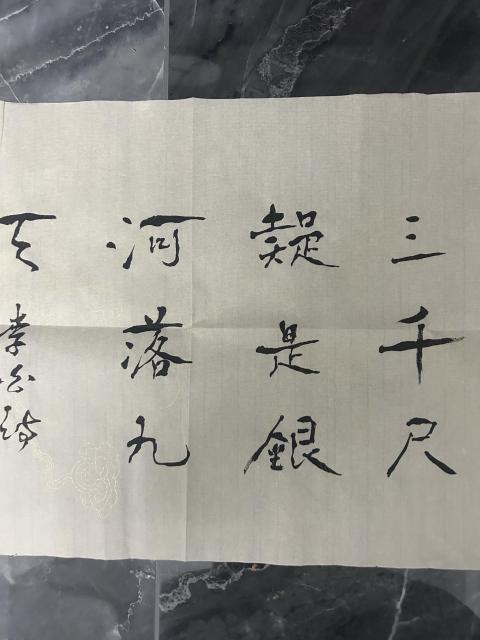 三千尺
疑是銀
河落九
天 李白詩